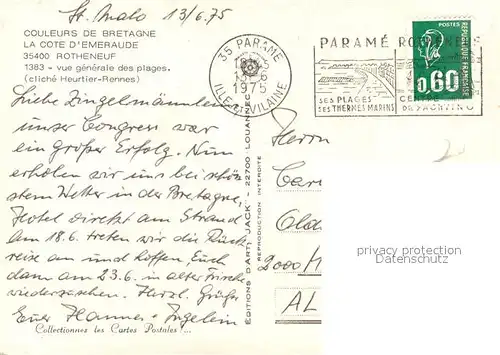 St. Malo 13/6.75
COULEURS DE BRETAGNE
LA COTE D'EMERAUDE
35400 ROTHENEUF
1383 - vue générale des plages.
(cliché Heurtier-Rennes)
Liebe Zingelmännlein
unser Congress war
ein großer Erfolg. Nun
erholen wir uns bei schön-
stem Wetter in der Bretagne,
Hotel direkt am Strand
am 18.6. treten wir die Rück
reise an und hoffen, Euch
dann am 23.6. in alter Frische
wiederzusehen. Herzl. Grüße
Euer Hannes + Ingelein
Collectionnez les Cartes Postales ...
EDITIONS D'ART "JACK" - 22700 LOUANNEC
REPRODUCTION INTERDITE
35 PARAMÉ
1975
ILLE-ET-VILAINE
PARAMÉ ROTHENEUF
SES PLAGES
SES THERMES MARINS
CENTRE
DE YACHTING
POSTES
0,60
REPUBLIQUE FRANÇAISE
Herrn
2000 H
AL
privacy protection
Datenschutz